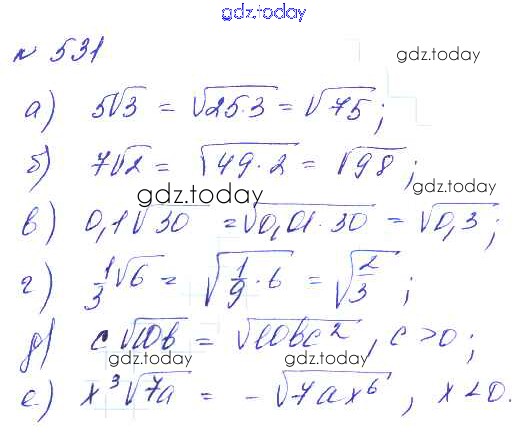 gdz.today
№ 531
gdz.today
а) 5√3 = √25·3 = √75;
б) 7√2 = √49·2 = √98;
gdz.today
gdz.today
в) 0,1√30 = √0,01·30 = √0,3;
г) 1/3√6 = √1/9·6 = √2/3;
д) c√10b = √10bc², c>0;
gdz.today
gdz.today
е) x³√7a = -√7ax⁶, x<0.